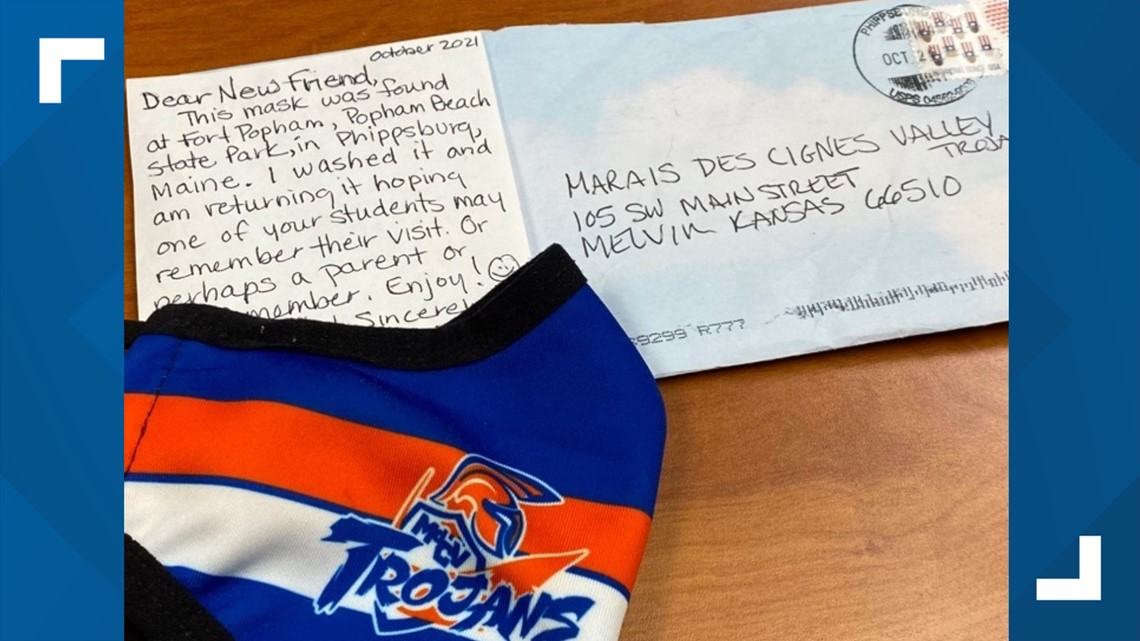 October 2021
Dear New Friend,
This mask was found
at Fort Popham, Popham Beach
State Park, in Phippsburg,
Maine. I washed it and
am returning it hoping
one of your students may
remember their visit. Or
perhaps a parent or
member. Enjoy!
Sincerel
PHIPPSB
OCT 2
USPS
MARAIS DES CIGNES VALLEY
TROJA
105 SW MAIN STREET
MELVIN KANSAS 66510
9299 R777
MdCV
TROJANS